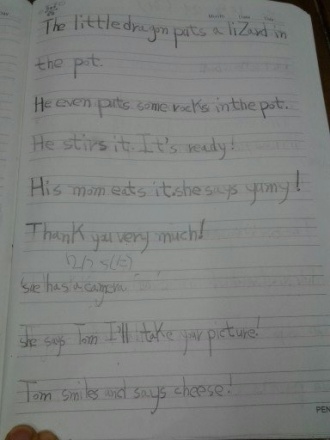 The little dragon puts a lizard in
the pot.
He even puts some rocks in the pot.
He stirs it. It's ready!
His mom eats it. she says yumy!
Thank you very much!
she has a camera
she says Tom I'll take your picture!
Tom smiles and says cheese!
PEN